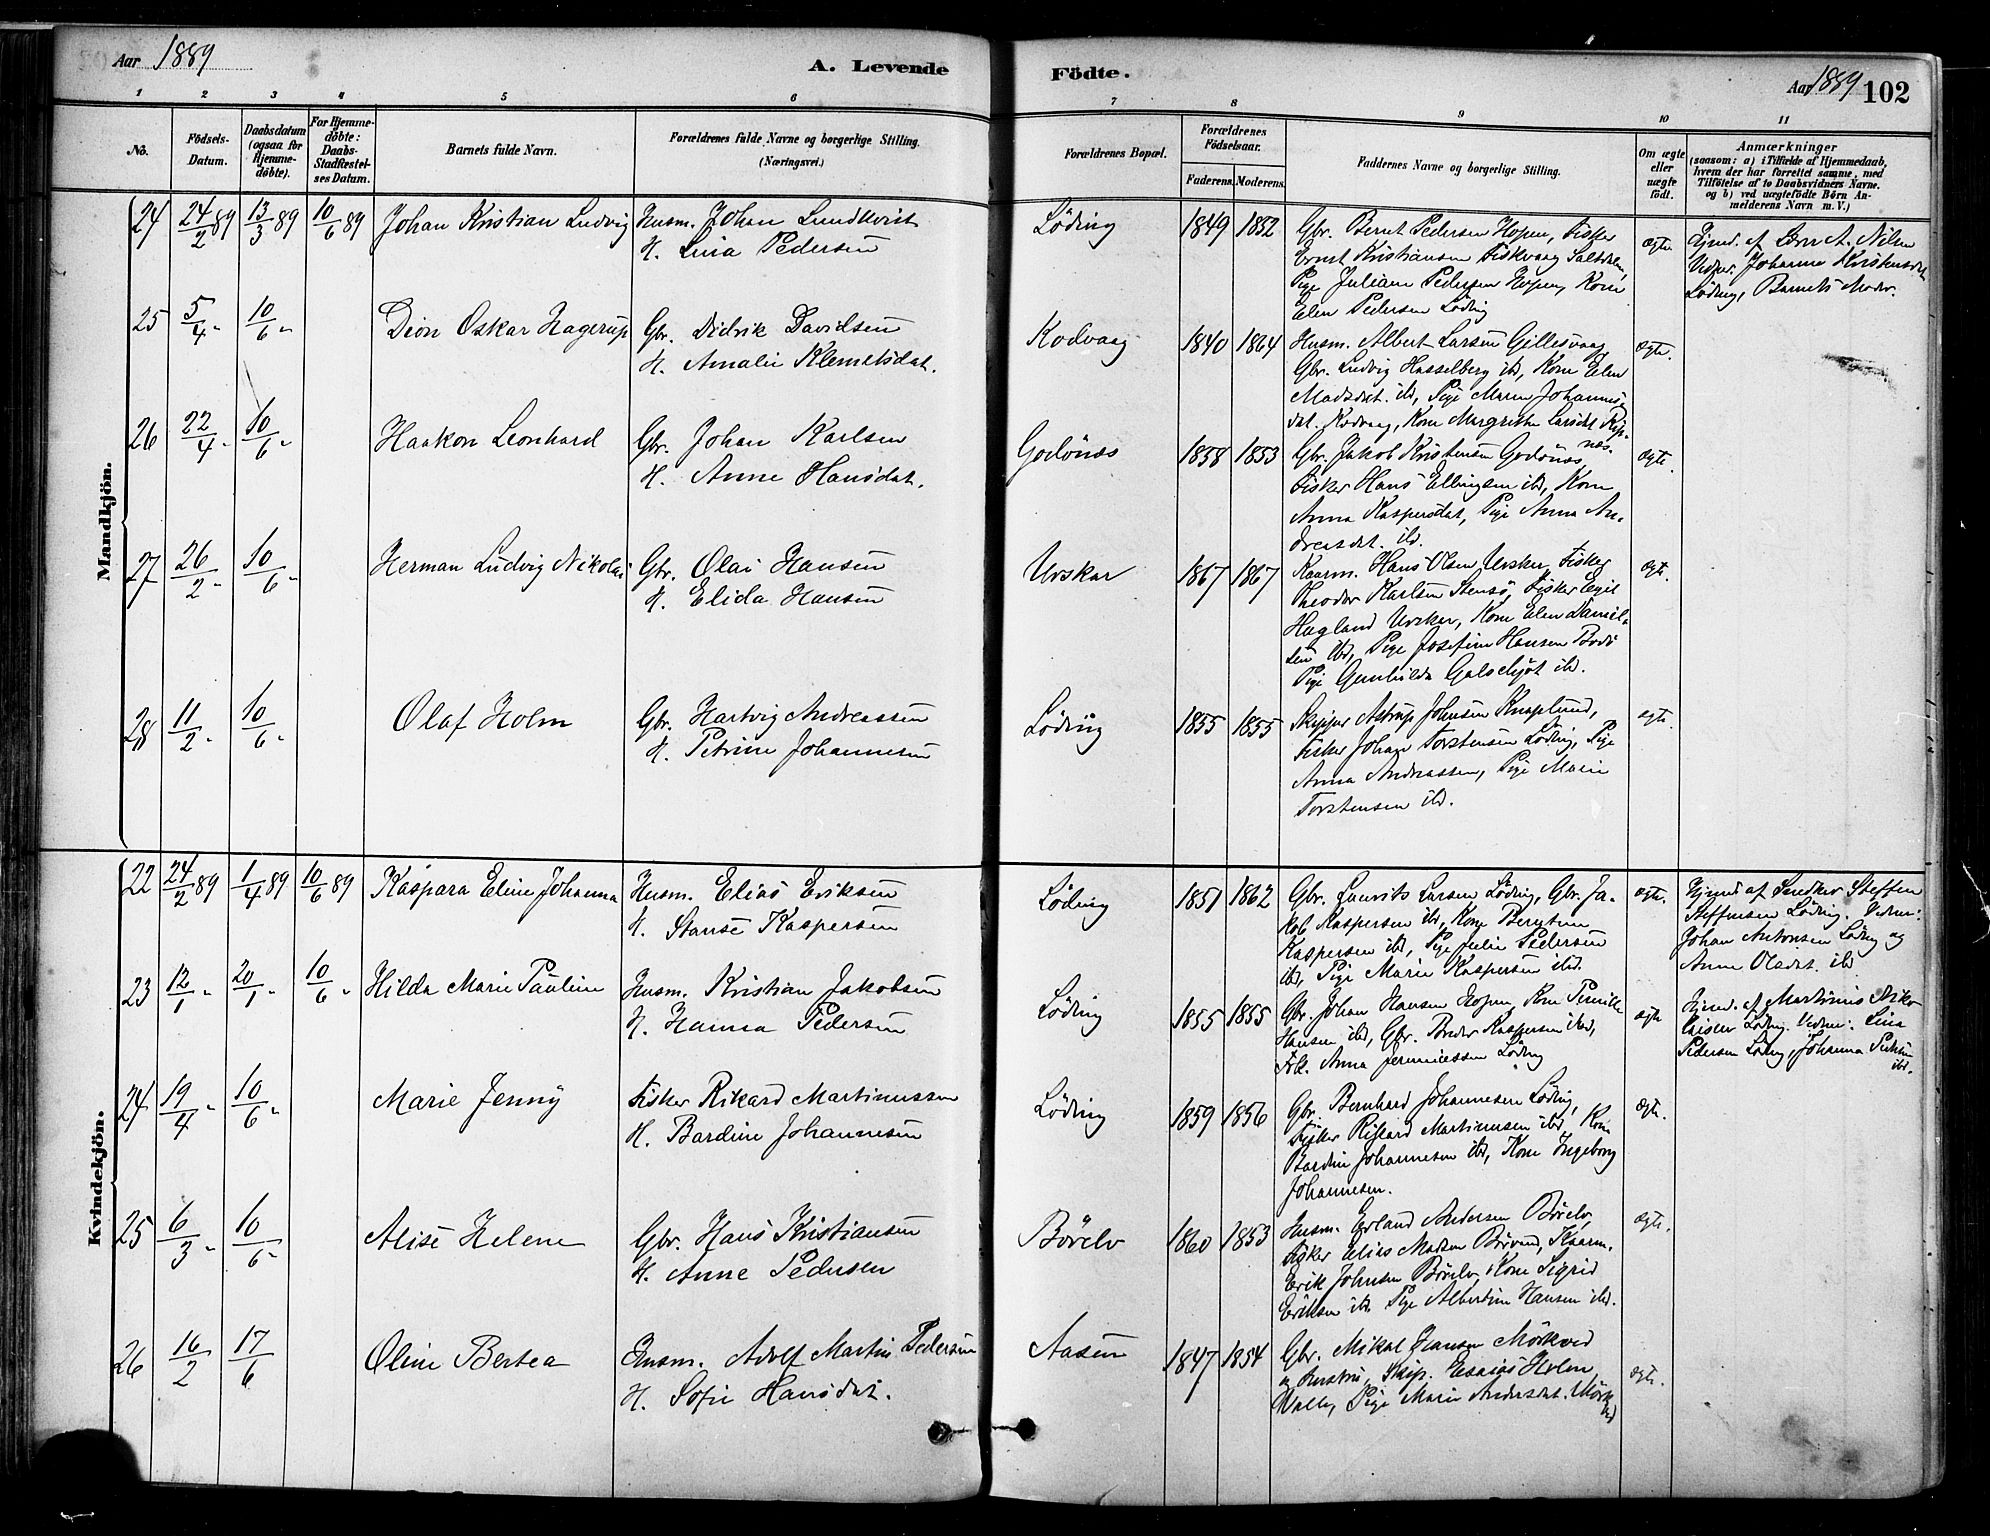 Aar 1889
A. Levende
Födte.
Aar 1889 102
1 2 3 4 5 6 7 8 9 10 11
No.
Födsels-
Datum.
Daabsdatum
(ogsaa for
Hjemme-
döbte).
For Hjemme-
döbte:
Daabs-
Stadfæstel-
ses Datum.
Barnets fulde Navn.
Forældrenes fulde Navne og borgerlige Stilling.
(Næringsvei.)
Forældrenes Bopæl.
Forældrenes
Födselsaar.
Faderens. Moderens.
Faddernes Navne og borgerlige Stilling.
Om ægte
eller
uægte
födt.
Anmærkninger
(saasom: a) i Tilfælde af Hjemmedaab,
hvem der har forrettet samme, med
Tilföielse af to Daabsvidners Navne.
og b) ved uægtefödte Börn An-
melderens Navn m. V.)
Mandkjön.
24 24/2 89 13/3 89 10/6 89 Johan Kristian Ludvig
Husm. Johan Lundkvist
H. Lina Pedersen
Löding 1849 1852
Gbr. Bernt Pedersen Hopen, Fisker
Ernst Kristiansen Fiskvaag Saltdalen,
Pige Juliane Pedersen Hopen, Kone
Elen Pedersen Löding
ægte.
Hjmd. af Lærer A. Nilsen
Vidner: Johanna Kristensdat
Löding, Barnets Moder.
25 5/4 " 10/6 " Dion Oskar Hagerup
Gbr. Didrik Davidsen
H. Amalie Klemetsdat.
Kodvaag 1840 1864
Husm. Albert Larsen Gillesvaag
Gbr. Ludvig Hasselberg ibd, Kone Elen
Madsdat. ibd, Pige Maren Johannes-
dat. Kodvaag, Kone Margrethe Larsdat Rip-
nes.
ægte.
26 22/4 " 10/6 " Haakon Leonhard
Gbr. Johan Karlsen
H. Anne Hansdat.
Godönæs 1858 1853
Gbr. Jakob Kristensen Godönæs
Fisker Hans Ellingsen ibd, Kone
Anna Kaspersdat, Pige Anna An-
dreasdat. ibd.
ægte.
27 26/2 " 10/6 " Herman Ludvig Nikolai
Gbr. Olai Hansen
H. Elida Hansen
Urskar 1867 1867
Kaarm. Hans Olsen Urskar, Fisker
Theodor Karlsen Stensö, Fisker Egil
Hagland Urskar, Kone Elen Daniel-
sen ibd, Pige Josefine Hansen Bodö
Pige Gunhilda Galschjöt ibd.
ægte.
28 11/2 " 10/6 " Olaf Holm
Gbr. Hartvig Andreassen
H. Petrine Johannesen
Löding 1855 1855
Skipper Astrup Johnsen Knaplund,
Fisker Johan Torstensen Löding, Pige
Anna Andreassen, Pige Marie
Torstensen ibd.
ægte.
Kvindekjön.
22 24/2 89 1/4 89 10/6 89 Kaspara Eline Johanna
Husm. Elias Eriksen
H. Stanse Kaspersen
Löding 1851 1862
Gbr. Laurits Larsen Löding, Gbr. Ja-
kob Kaspersen ibd, Kone Berntine
Kaspersen ibd, Pige Julie Pedersen
ibd, Pige Marie Kaspersen ibd.
ægte.
Hjmd. af Snedker Steffen
Steffensen Löding. Vidner:
Johan Antonsen Löding og
Anne Olsdat. ibd
23 12/1 " 20/1 " 10/6 " Hilda Marie Pauline
Husm. Kristian Jakobsen
H. Hanna Pedersen
Löding 1855 1855
Gbr. Johan Hansen Hopen, Kone Pernille
Hansen ibd, Gbr. Peder Kaspersen ibd,
Frk. Anna Jeremiassen Löding
ægte
Hjmd. af Martinus Niko
laisen Löding. Vidner: Lina
Pedersen Löding, Johanna Pedersen
ibd.
24 19/4 " 10/6 " Marie Jenny
Fisker Rikard Martinussen
H. Bardine Johannesen
Löding 1859 1856
Gbr. Bernhard Johannesen Löding,
Fisker Rikard Martinusen ibd, Kone
Bardine Johannesen ibd, Kone Ingeborg
Johannesen.
ægte.
25 6/3 " 10/6 " Alise Helene
Gbr. Hans Kristiansen
H. Anne Pedersen
Börelv 1860 1853
Husm. Erland Andersen Börelv,
Fisker Elias Madsen Börvand, Kaarm.
Erik Johnsen Börelv, Kone Sigrid
Eriksen ibd, Pige Albertine Hansen ibd.
ægte.
26 16/2 17/6 Oline Bertea
Husm. Adolf Martin Pedersen
H. Sofie Hansdat.
Aasen 1847 1854
Gbr. Mikal Hansen Mörkved
og Hustru, Skip. Esaias Holm
Valle, Pige Marie Andersdat. Mörk
ved
ægte.